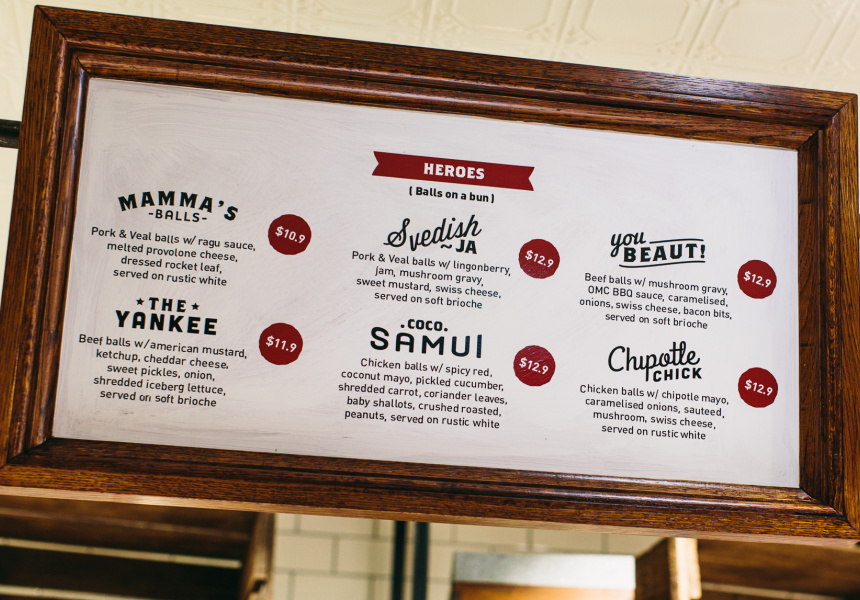 HEROES
( Balls on a bun )
MAMMA'S
-BALLS-
$10.9
Pork & Veal balls w/ ragu sauce,
melted provolone cheese,
dressed rocket leaf,
served on rustic white
Svedish
~JA
$12.9
Pork & Veal balls w/ lingonberry,
jam, mushroom gravy,
sweet mustard, swiss cheese,
served on soft brioche
you
BEAUT!
$12.9
Beef balls w/ mushroom gravy,
OMC BBQ sauce, caramelised,
onions, swiss cheese, bacon bits,
served on soft brioche
★THE★
YANKEE
$11.9
Beef balls w/american mustard,
ketchup, cheddar cheese,
sweet pickles, onion,
shredded iceberg lettuce,
served on soft brioche
.COCO.
SAMUI
$12.9
Chicken balls w/ spicy red,
coconut mayo, pickled cucumber,
shredded carrot, coriander leaves,
baby shallots, crushed roasted,
peanuts, served on rustic white
Chipotle
CHICK
$12.9
Chicken balls w/ chipotle mayo,
caramelised onions, sauteed,
mushroom, swiss cheese,
served on rustic white